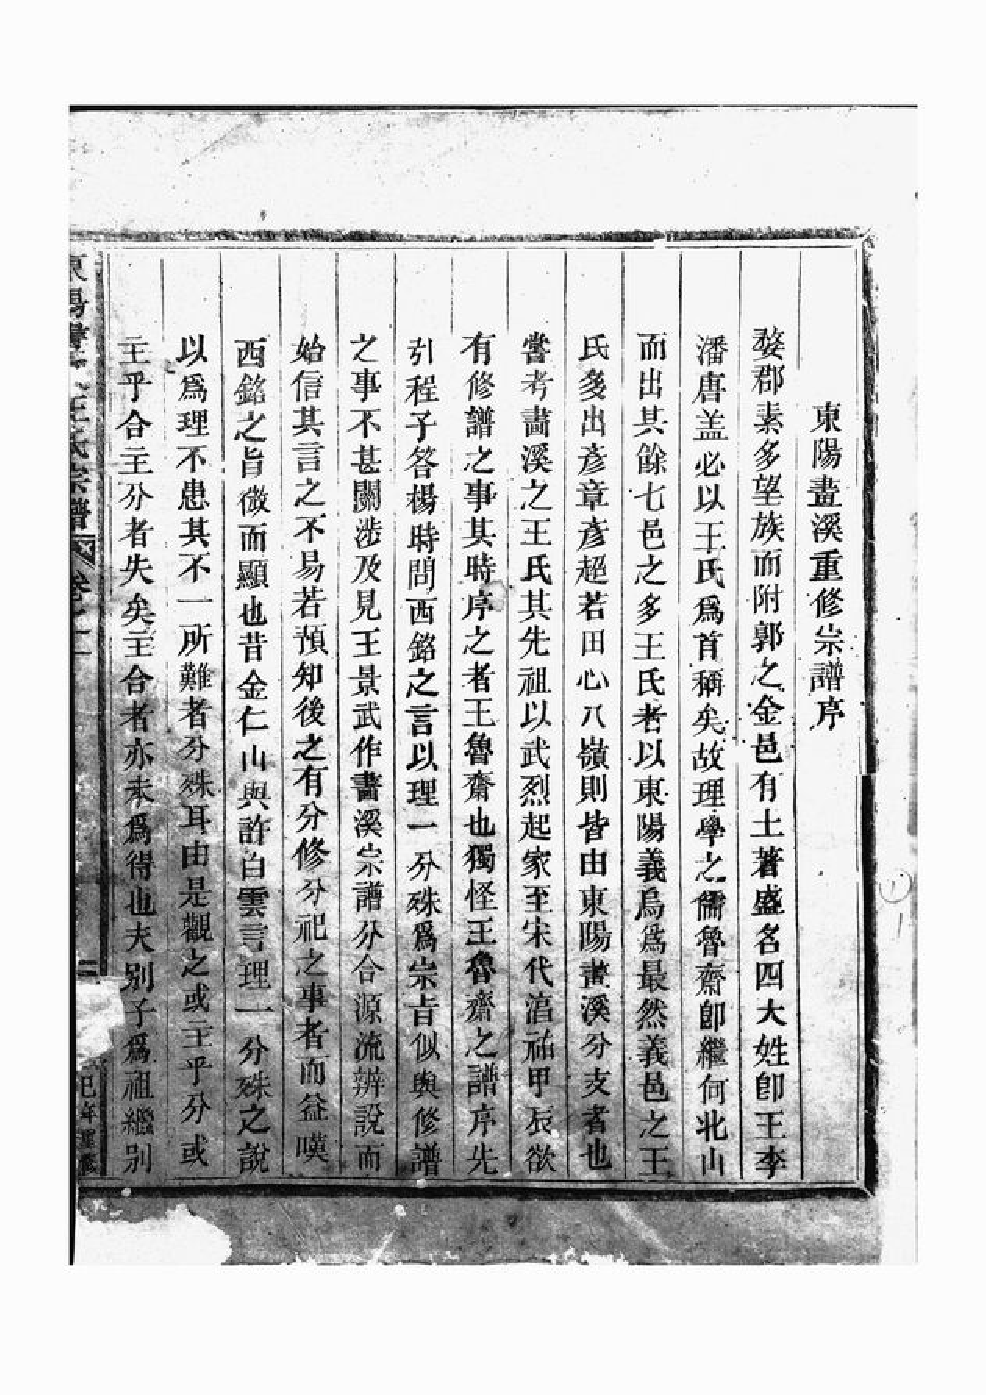 東陽畫溪重修宗譜序
婺郡素多望族而附郭之金邑有土著盛名四大姓卽王李
潘唐盖必以王氏爲首稱矣故理學之儒魯齋卽繼何北山
而出其餘七邑之多王氏者以東陽義烏爲最然義邑之王
氏多出彦章彦超若田心八嶺則皆由東陽畫溪分支者也
嘗考畫溪之王氏其先祖以武烈起家至宋代淳祐甲辰欲
有修譜之事其時序之者王魯齋也獨怪王魯齋之譜序先
引程子答楊時問西銘之言以理一分殊爲宗旨似與修譜
之事不甚關涉及見王景武作畫溪宗譜分合源流辨說而
始信其言之不易若預知後之有分修分祀之事者而益嘆
西銘之旨微而顯也昔金仁山與許白雲言理一分殊之說
以爲理不患其不一所難者分殊耳由是觀之或主乎分或
主乎合主分者失矣主合者亦未爲得也夫别子爲祖繼别
東陽畫溪王氏宗譜 卷之一 二 巳年重修